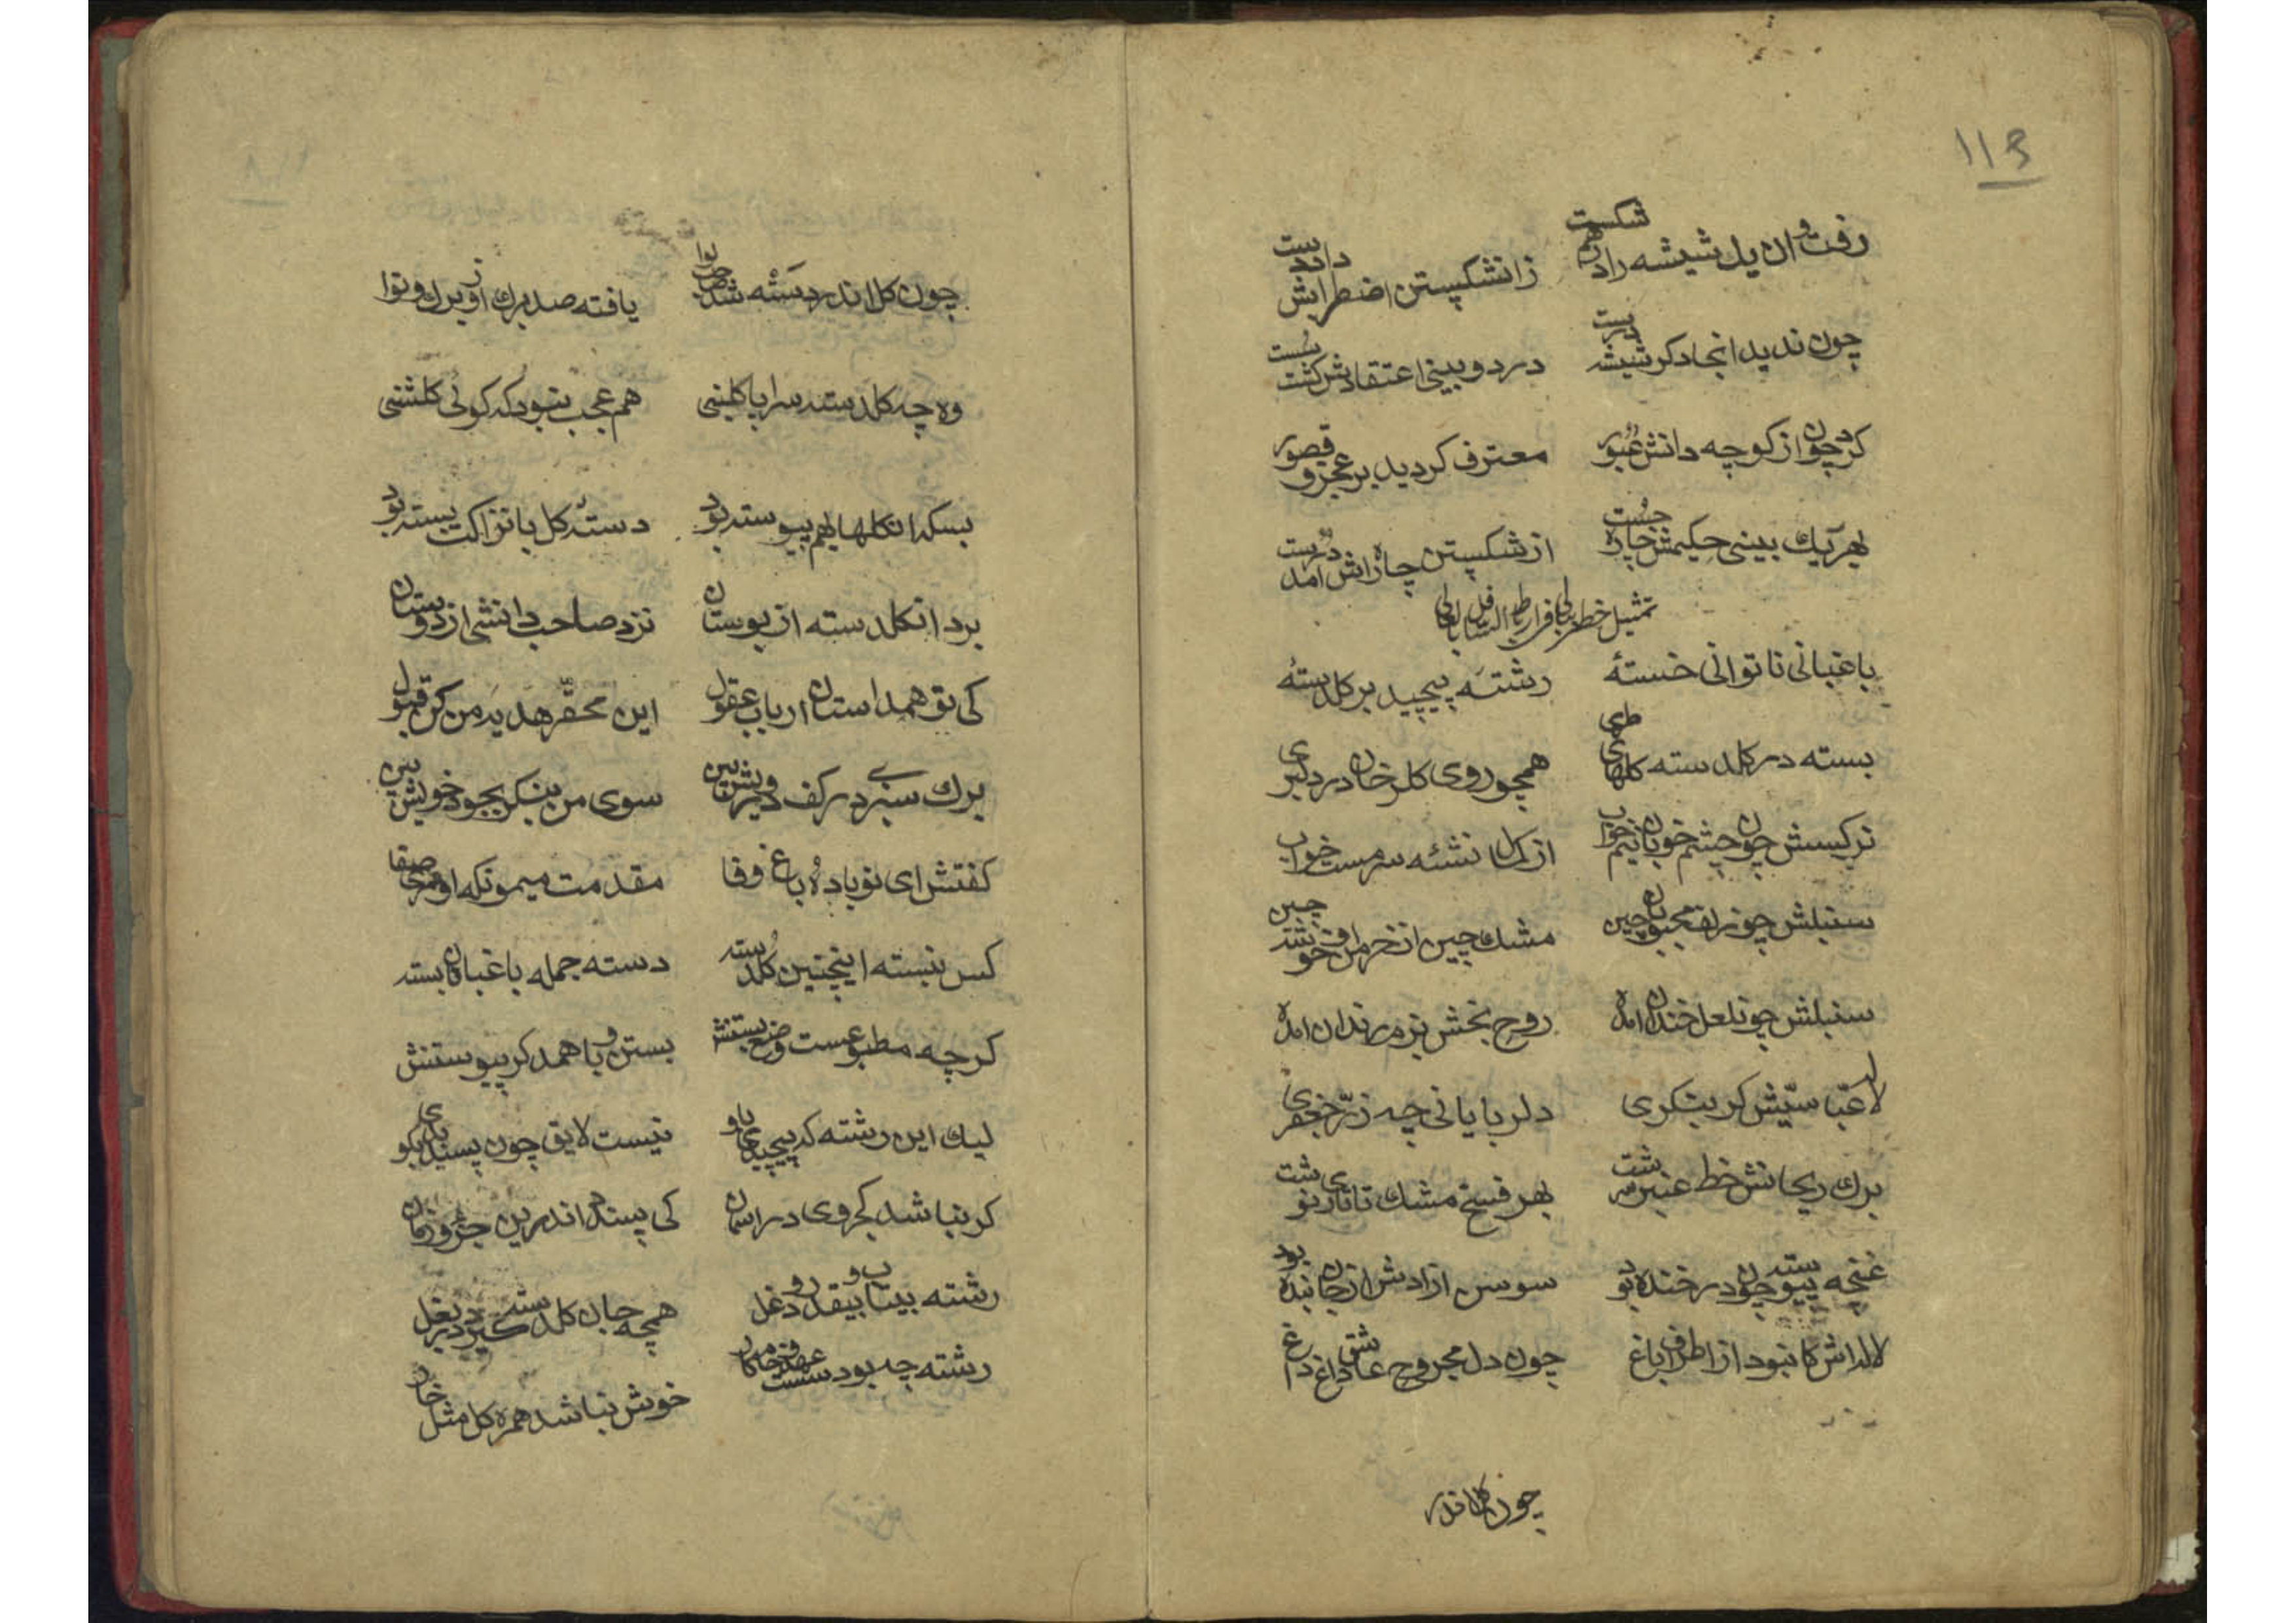 ۱۱۳
رفت و ان یل شیشه را درهم شکست
زانشکستن اضطرابش داد دست
چون ندید انجا دکر شیشه درست
در دو بینی اعتقادش کشت سست
کرد چون از کوچه دانش عبور
معترف کردید بر عجز و قصور
بهر یك بینی حکیمش چاره جست
از شکستن چاره اش امد درست
تمثیل خطر
باغبانی ناتوانی خستهٔ
رشته پیچید بر کلدستهٔ
بسته در کلدسته کلهای طری
همچو روی کلرخان در دلبری
نرکسش چون چشم خوبان نیم خواب
از کمال نشئه سرمست خواب
سنبلش چون زلف محبوبان چین
مشك چین از خرمن او خوشه چین
سنبلش چون لعل خندان امده
روح بخش بزم رندان امده
لاعباسیش کر بنکری
دلربایانی چه زر جعفری
برك ریحانش خط عنبر سرشت
بهر فسخ مشك تاتاری نوشت
غنچه پیوسته چون در خنده بود
سوسن ازادش از جان بنده بود
لاله اش کانبود از اطراف باغ
چون دل مجروح عاشق داغ داغ
چون کل اندر
چون کل اندر دسته شد
یافته صد برك ازو برك و نوا
وه چه کلدسته سراپا کلبنی
هم عجب نبود که کوئی کلشنی
بسکه انکلها بهم پیوسته بود
دستهٔ کل با نزاکت بسته بود
برد انکلدسته از بوستان
نزد صاحب دانشی از دوستان
کی تو همداستان ارباب عقول
این محقر هدیه من کن قبول
برك سبز در کف درویش بین
سوی من بنکر بجود خویش بین
کفتش ای نوباده باغ وفا
مقدمت میمونکه اوردی صفا
کس نبسته اینچنین کلدسته
دسته جمله باغبانان بسته
کرچه مطبوعست وضع بستنش
بستن و با همدکر پیوستنش
لیك این رشته که پیچیدی باو
نیست لایق چون پسندیدی بکو
کر نباشد کجروی در اسمان
کی پسندد اندرین جزو زمان
رشته بیتاب و بیقدر و دغل
همچه جان کلدسته کیرد در بغل
رشته چه بود سست
خوش نباشد همره کل مثل خار